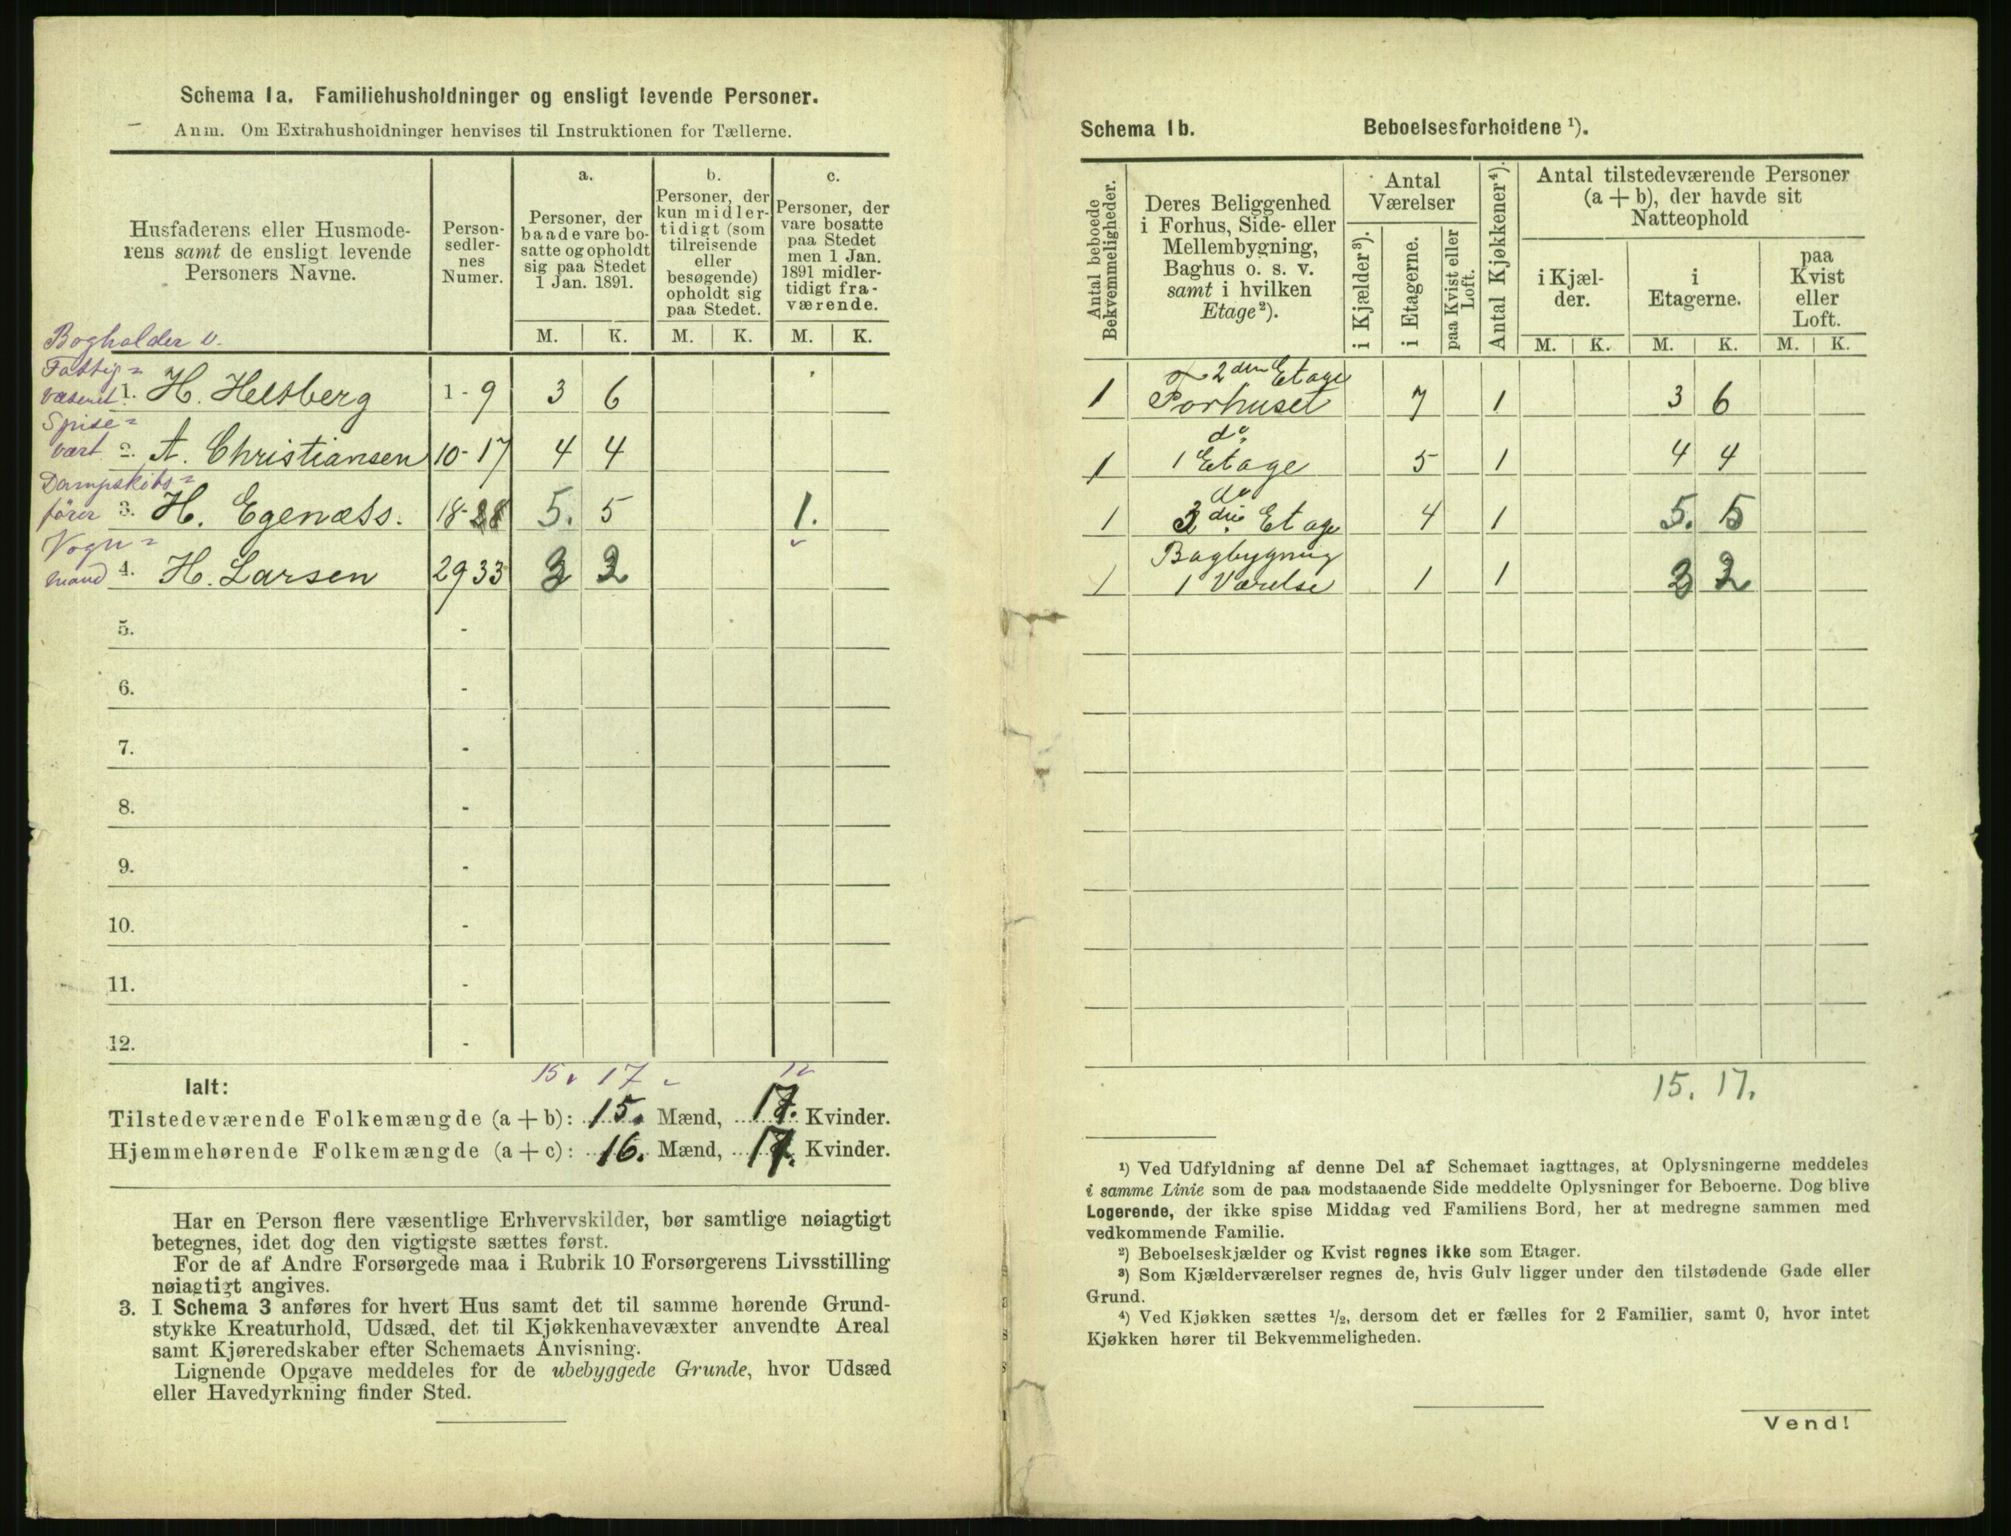 Schema 1a. Familiehusholdninger og ensligt levende Personer.
Anm. Om Extrahusholdninger henvises til Instruktionen for Tællerne.
Husfaderens eller Husmode-
rens samt de ensligt levende
Personers Navne.
Person-
sedler-
nes
Numer.
a.
Personer, der
baade vare bo-
satte og opholdt
sig paa Stedet
1 Jan. 1891.
b.
Personer, der
kun midler-
tidigt (som
tilreisende
eller
besøgende)
opholdt sig
paa Stedet.
c.
Personer, der
vare bosatte
paa Stedet
men 1 Jan.
1891 midler-
tidigt fra-
værende.
M. K. M. K. M. K.
Bogholder v.
Fattig=
væsenet 1. H. Heltberg 1-9 3 6
Spise=
vært 2. A. Christiansen 10-17 4 4
Dampskibs=
fører 3. H. Egenæss. 18-28 5. 5 1.
Vogn=
mand 4. H. Larsen 29 33 3 2
5. -
6. -
7. -
8. -
9. -
10. -
11. -
12. -
15 17
Ialt:
Tilstedeværende Folkemængde (a + b): 15. Mænd, 17. Kvinder.
Hjemmehørende Folkemængde (a + c): 16. Mænd, 17. Kvinder.
Har en Person flere væsentlige Erhvervskilder, bør samtlige nøiagtigt
betegnes, idet dog den vigtigste sættes først.
For de af Andre Forsørgede maa i Rubrik 10 Forsørgerens Livsstilling
nøiagtigt angives.
3. I Schema 3 anføres for hvert Hus samt det til samme hørende Grund-
stykke Kreaturhold, Udsæd, det til Kjøkkenhavevæxter anvendte Areal
samt Kjøreredskaber efter Schemaets Anvisning.
Lignende Opgave meddeles for de ubebyggede Grunde, hvor Udsæd
eller Havedyrkning finder Sted.
Schema 1b. Beboelsesforholdene ¹).
Antal beboede
Bekvemmeligheder.
Deres Beliggenhed
i Forhus, Side- eller
Mellembygning,
Baghus o. s. v.
samt i hvilken
Etage²).
Antal
Værelser
i Kjælder³).
i Etagerne.
paa Kvist eller
Loft.
Antal Kjøkkener⁴).
Antal tilstedeværende Personer
(a + b), der havde sit
Natteophold
i Kjæl-
der.
i
Etagerne.
paa
Kvist
eller
Loft.
M. K. M. K. M. K.
2den Etage
1 Forhuset 7 1 3 6
do
1 1 Etage 5 1 4 4
do
1 3die Etage 4 1 5. 5
Bagbygning
1 1 Værelse 1 1 3 2
15. 17.
¹) Ved Udfyldning af denne Del af Schemaet iagttages, at Oplysningerne meddeles
i samme Linie som de paa modstaaende Side meddelte Oplysninger for Beboerne. Dog blive
Logerende, der ikke spise Middag ved Familiens Bord, her at medregne sammen med
vedkommende Familie.
²) Beboelseskjælder og Kvist regnes ikke som Etager.
³) Som Kjælderværelser regnes de, hvis Gulv ligger under den tilstødende Gade eller
Grund.
⁴) Ved Kjøkken sættes ½, dersom det er fælles for 2 Familier, samt 0, hvor intet
Kjøkken hører til Bekvemmeligheden.
Vend!